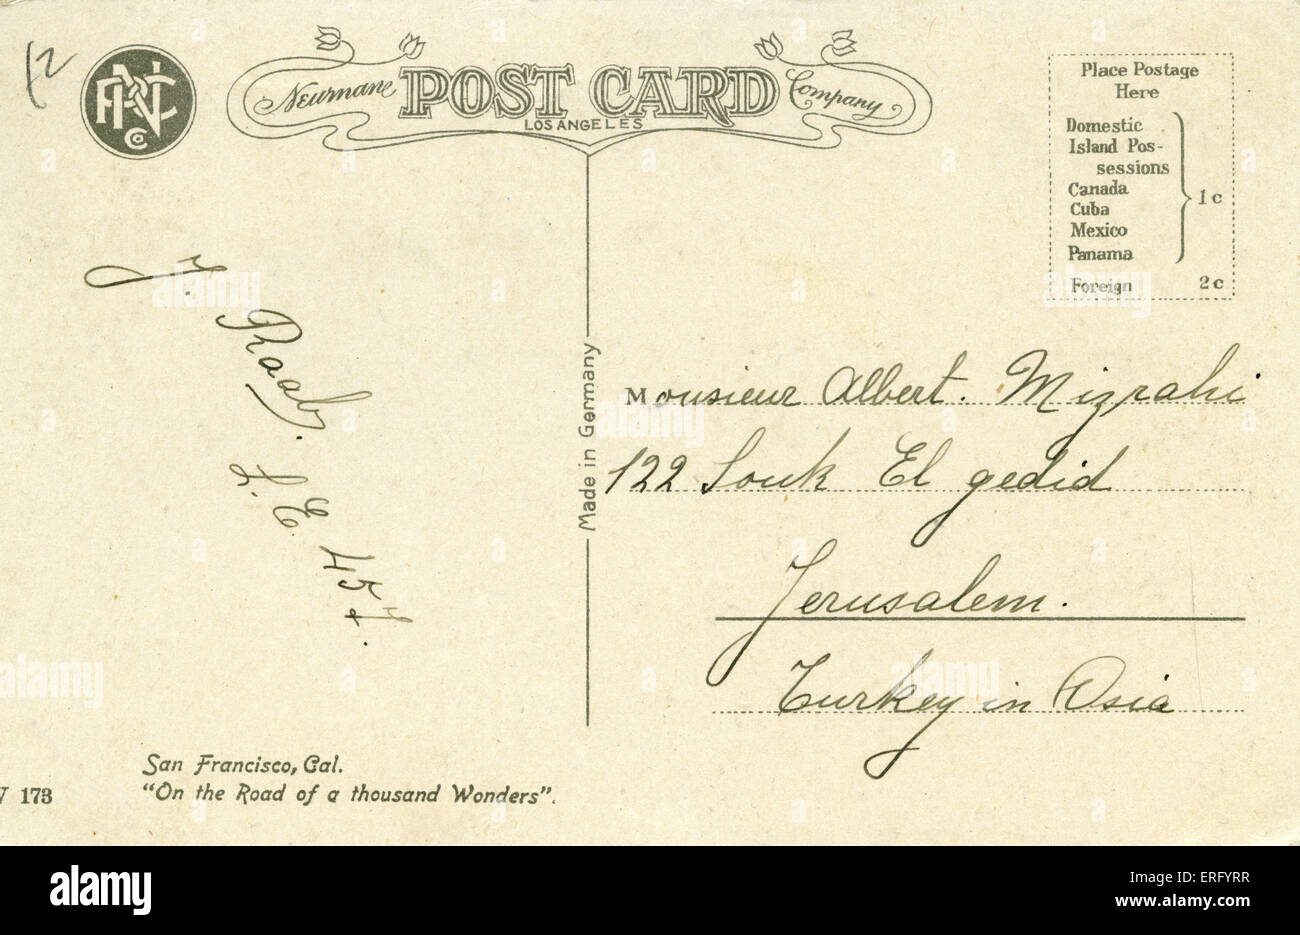 12
PNC
Co
Newmane POST CARD Company
LOS ANGELES
Place Postage
Here
Domestic
Island Pos-
sessions
Canada
Cuba
Mexico
Panama
1c
Foreign 2c
J. Raab.
L. E. 457.
Made in Germany
Monsieur Albert. Mizrahi
122 Souk El gedid
Jerusalem.
Turkey in Asia
San Francisco, Cal.
"On the Road of a thousand Wonders".
173
alamy
a
alamy stock photo
ERFYRR
www.alamy.com